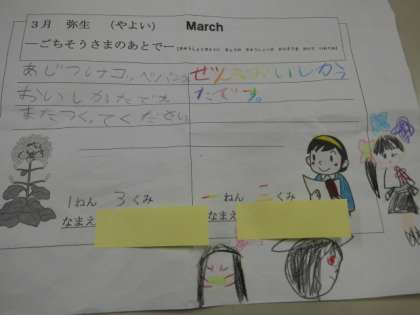 3月 弥生 (やよい) March
―ごちそうさまのあとで―
おいしかたです
またつくてください
ぜんぶおいしかっ
たです。
1ねん 3くみ
なまえ
一ねん 三くみ
なまえ